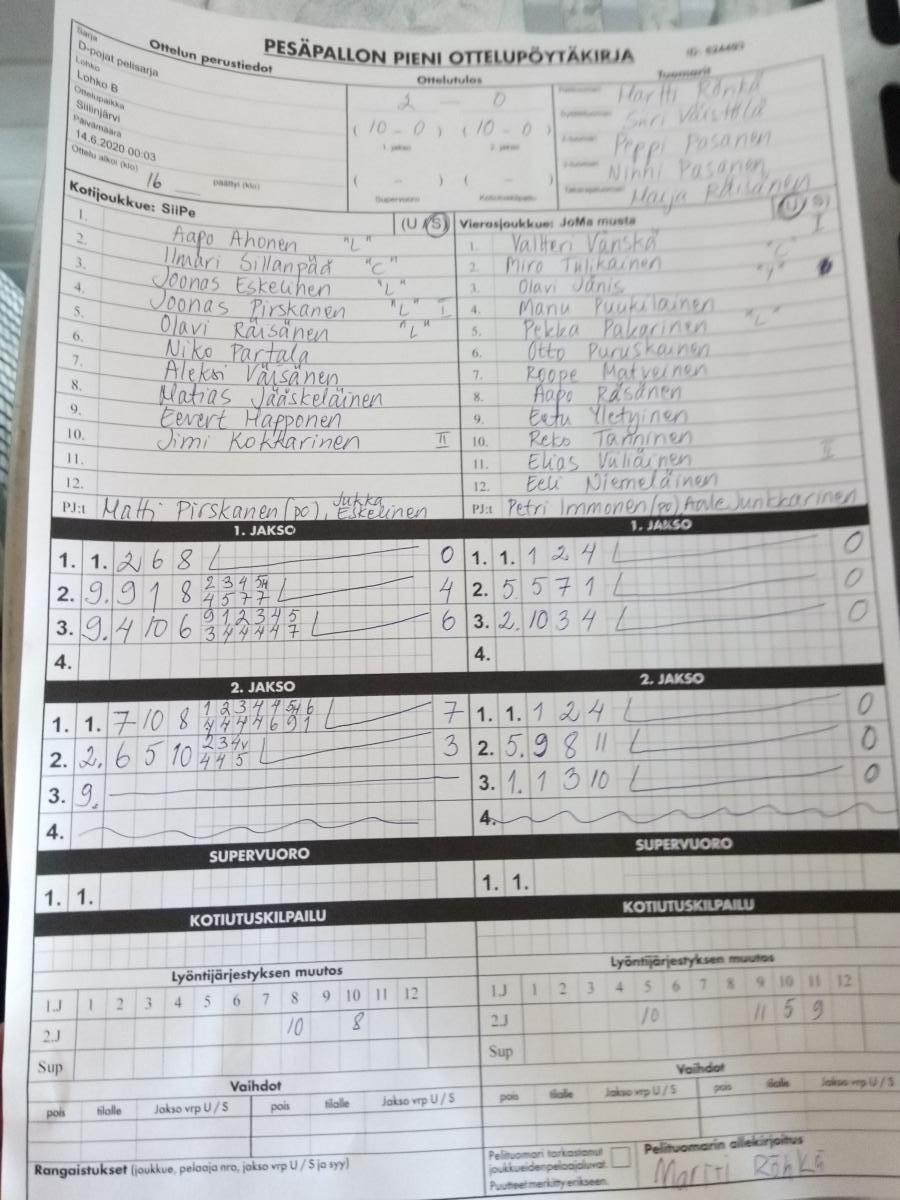 PESÄPALLON PIENI OTTELUPÖYTÄKIRJA
Sarja
D-pojat pelisarja
Lohko
Lohko B
Ottelupaikka
Siilinjärvi
Päivämäärä
14.6.2020 00:03
Ottelu alkoi (klo) päättyi (klo)
16
Ottelun perustiedot
Ottelutulos
2 — 0
(10 - 0) (10 - 0)
1. jakso 2. jakso
( - ) ( - )
Supervuoro Kotiutuskilpailu
Tuomarit
Martti Rönkä
Suri Väistölä
Peppi Pasanen
Ninni Pasanen
Maija Räisänen
Kotijoukkue: SiiPe (U / S)
1. Aapo Ahonen "L"
2. Ilmari Sillanpää "C"
3. Joonas Eskelinen "L"
4. Joonas Pirskanen "L" I
5. Olavi Räisänen "L"
6. Niko Partala
7. Aleksi Väisänen
8. Matias Jääskeläinen
9. Eevert Happonen
10. Jimi Kokkarinen II
11.
12.
PJ:t Matti Pirskanen (pc), Jukka Eskelinen
Vierasjoukkue: JoMa musta (U / S) I
1. Valtteri Vänskä "C"
2. Miro Tulikainen
3. Olavi Jänis
4. Manu Puukilainen "L"
5. Pekka Pakarinen
6. Otto Puruskainen
7. Roope Matveinen
8. Aapo Räsänen
9. Eetu Yletyinen
10. Reko Tanninen
11. Elias Väliäinen II
12. Eeli Niemeläinen
PJ:t Petri Immonen (pc) Aale Junkkarinen
1. JAKSO
1. 1. 2 6 8 0
2. 9. 9 1 8 2 3 4 5 4 4
4 5 7 7
3. 9. 4 10 6 9 1 2 3 4 5 6
3 4 4 4 4 7
4.
1. JAKSO
1. 1. 1 2 4 0
2. 5. 5 7 1 0
3. 2. 10 3 4 0
4.
2. JAKSO
1. 1. 7 10 8 1 2 3 4 4 5 6 7
4 4 4 4 6 9 1
2. 2. 6 5 10 2 3 4 3
4 4 5
3. 9.
4.
2. JAKSO
1. 1. 1 2 4 0
2. 5. 9 8 11 0
3. 1. 1 3 10 0
4.
SUPERVUORO
1. 1.
SUPERVUORO
1. 1.
KOTIUTUSKILPAILU
KOTIUTUSKILPAILU
Lyöntijärjestyksen muutos
1.J 1 2 3 4 5 6 7 8 9 10 11 12
2.J 10 8
Sup
Lyöntijärjestyksen muutos
1.J 1 2 3 4 5 6 7 8 9 10 11 12
2.J 10 11 5 9
Sup
Vaihdot
pois tilalle Jakso vrp U / S pois tilalle Jakso vrp U / S
Vaihdot
pois tilalle Jakso vrp U / S pois tilalle Jakso vrp U / S
Rangaistukset (joukkue, pelaaja nro, jakso vrp U / S ja syy)
Pelituomari tarkastanut
joukkueiden pelaajaluvat.
Puutteet merkitty erikseen.
Pelituomarin allekirjoitus
Martti Rönkä